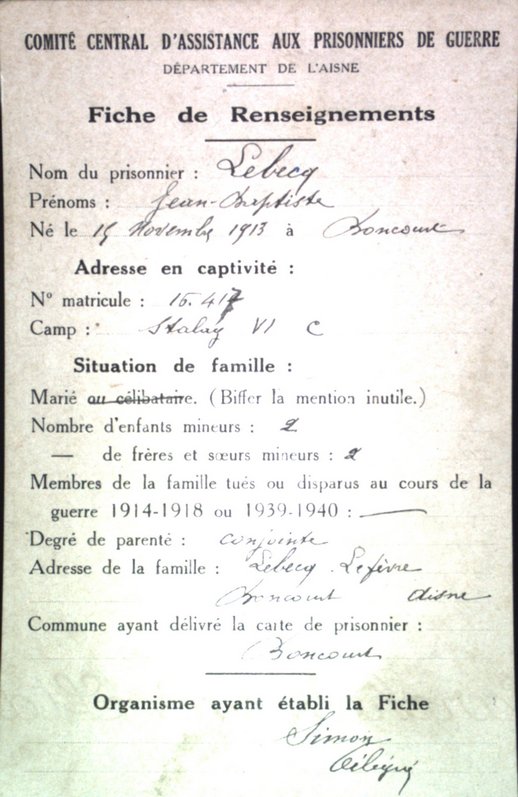 COMITÉ CENTRAL D'ASSISTANCE AUX PRISONNIERS DE GUERRE
DÉPARTEMENT DE L'AISNE
Fiche de Renseignements
Nom du prisonnier : Lebecq
Prénoms : Jean-Baptiste
Né le 15 Novembre 1913 à Boncourt
Adresse en captivité :
N° matricule : 16.417
Camp : Stalag VI C
Situation de famille :
Marié ou célibataire. (Biffer la mention inutile.)
Nombre d'enfants mineurs : 2
— de frères et sœurs mineurs : 2
Membres de la famille tués ou disparus au cours de la
guerre 1914-1918 ou 1939-1940 : —
Degré de parenté : conjointe
Adresse de la famille : Lebecq-Lefèvre
Boncourt Aisne
Commune ayant délivré la carte de prisonnier :
Boncourt
Organisme ayant établi la Fiche
Simon